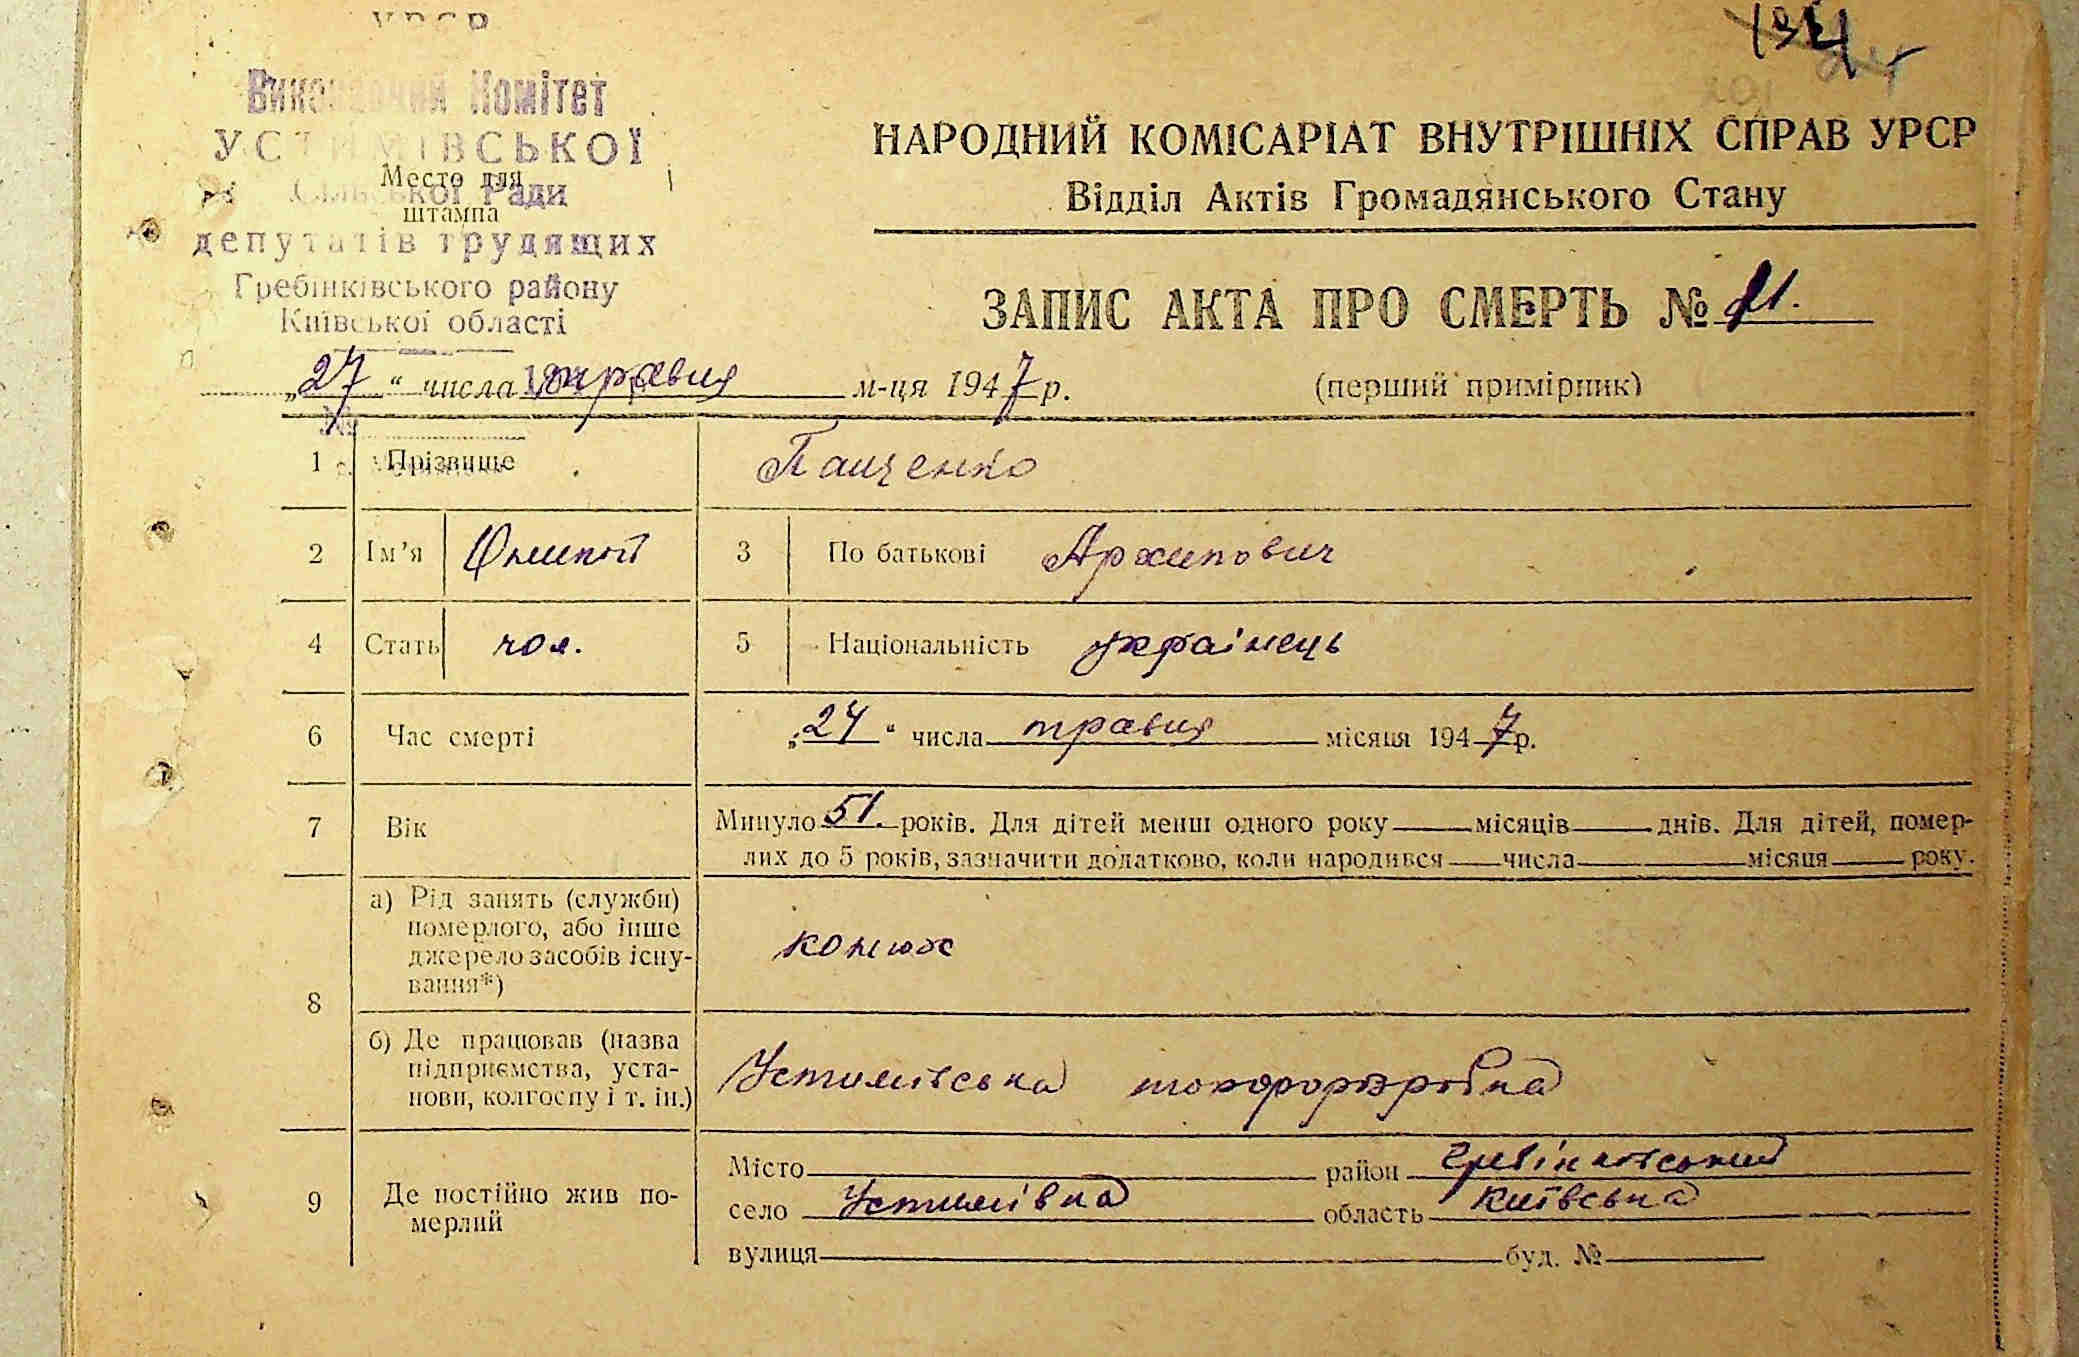 УРСР
134
Виконавчий Комітет
УСТИМІВСЬКОЇ
Место для
Сільської Ради
штампа
депутатів трудящих
Гребінківського району
Київської області
НАРОДНИЙ КОМІСАРІАТ ВНУТРІШНІХ СПРАВ УРСР
Відділ Актів Громадянського Стану
ЗАПИС АКТА ПРО СМЕРТЬ № 21.
„27“ числа травня м-ця 1947 р.
(перший примірник)
1 Прізвище Пащенко
2 Ім'я 3 По батькові Архипович
4 Стать чол. 5 Національність українець
6 Час смерті „24“ числа травня місяця 1947 р.
7 Вік Минуло 51. років. Для дітей менш одного року місяців днів. Для дітей, помер-
лих до 5 років, зазначити додатково, коли народився числа місяця року.
8 а) Рід занять (служби)
померлого, або інше
джерело засобів існу-
вання*)
конюх
б) Де працював (назва
підприємства, уста-
нови, колгоспу і т. ін.)
Устимівська
9 Де постійно жив по-
мерлий
Місто район Гребінківський
село Устимівка область Київська
вулиця буд. №